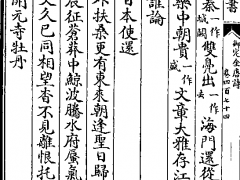 書
御定全唐詩
卷四百七十四
秦一作城闕雙鳧出一作去海門還從
樂中朝貴一作盛文章大雅存江
誰論
日本使還
外扶桑更有東來朝逢聖日歸
晨征蒼莽中鯨波騰水府蜃氣
文久已同相望杳不見離恨托
開元寺牡丹